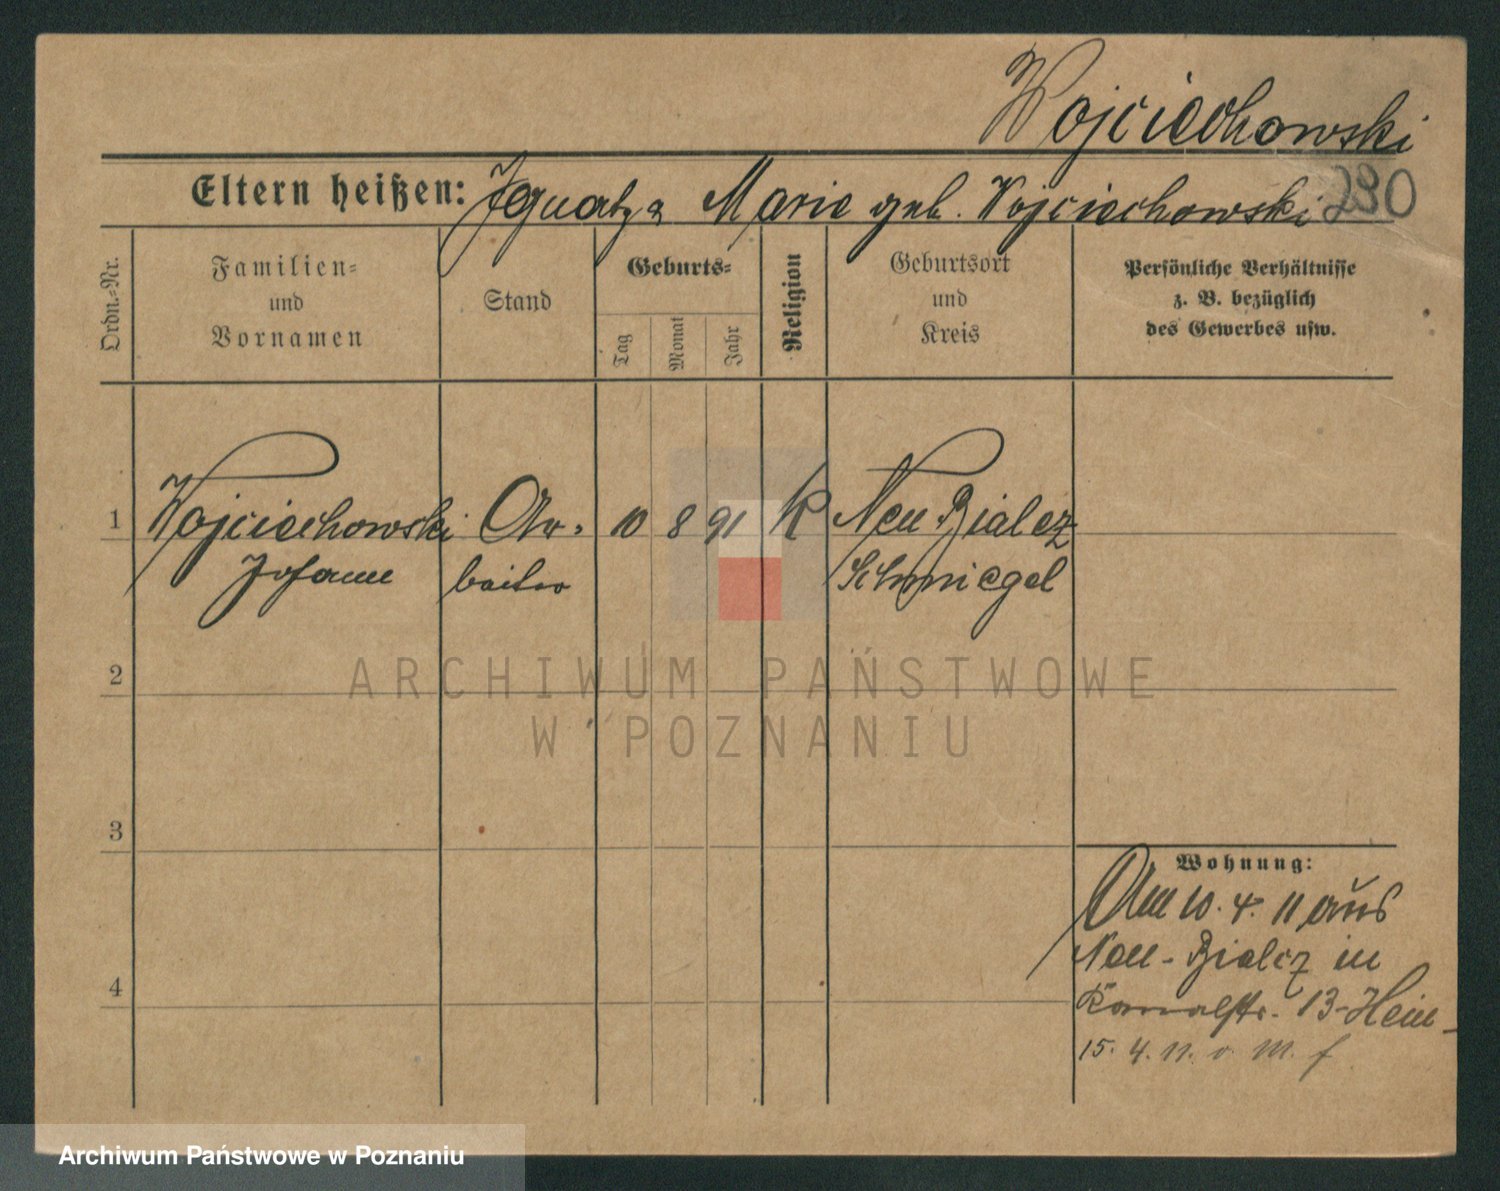 Wojciechowski
Eltern heißen: Ignatz u Marie geb. Wojciechowski 290
Ordn.-Nr.
Familien-
und
Vornamen
Stand
Geburts-
Tag
Monat
Jahr
Religion
Geburtsort
und
Kreis
Persönliche Verhältnisse
z. B. bezüglich
des Gewerbes usw.
1 Wojciechowski Ar- 10 8 91 K Neu Bialcz
Johann beiter Schmiegel
2
ARCHIWUM PAŃSTWOWE
W POZNANIU
3
Wohnung:
Am 10. 4. 11 aus
Neu-Bialcz in
Kanalstr. 13-
4
15. 4. 11. v. m. f
Archiwum Państwowe w Poznaniu